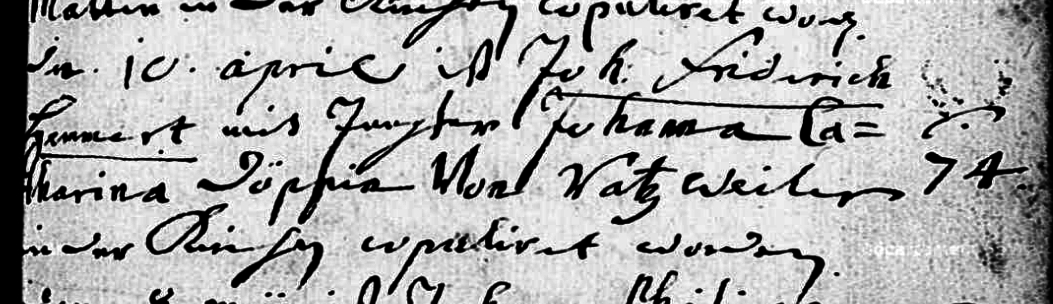 in der Kirchen copuliret word.
den 10. april ist Joh. Friderich
Hemmert mit Jungfer Johanna Ca=
tharina Döppin Von Vatzweiler 74
in der Kirchen copuliret worden.